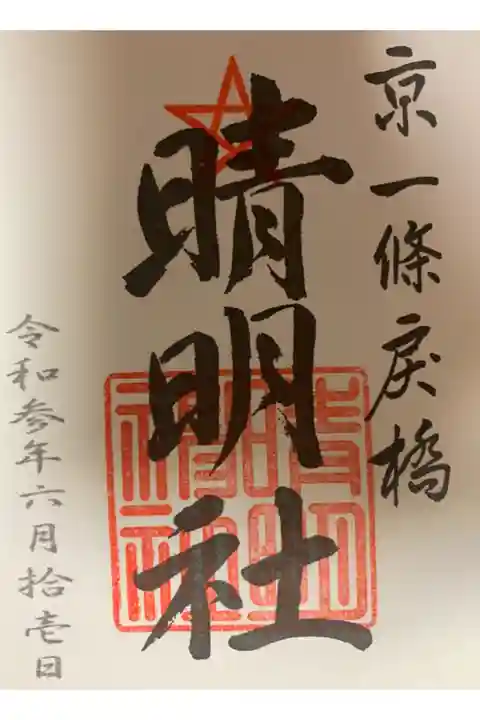 京一條戻橋
晴明社
令和参年六月拾壱日